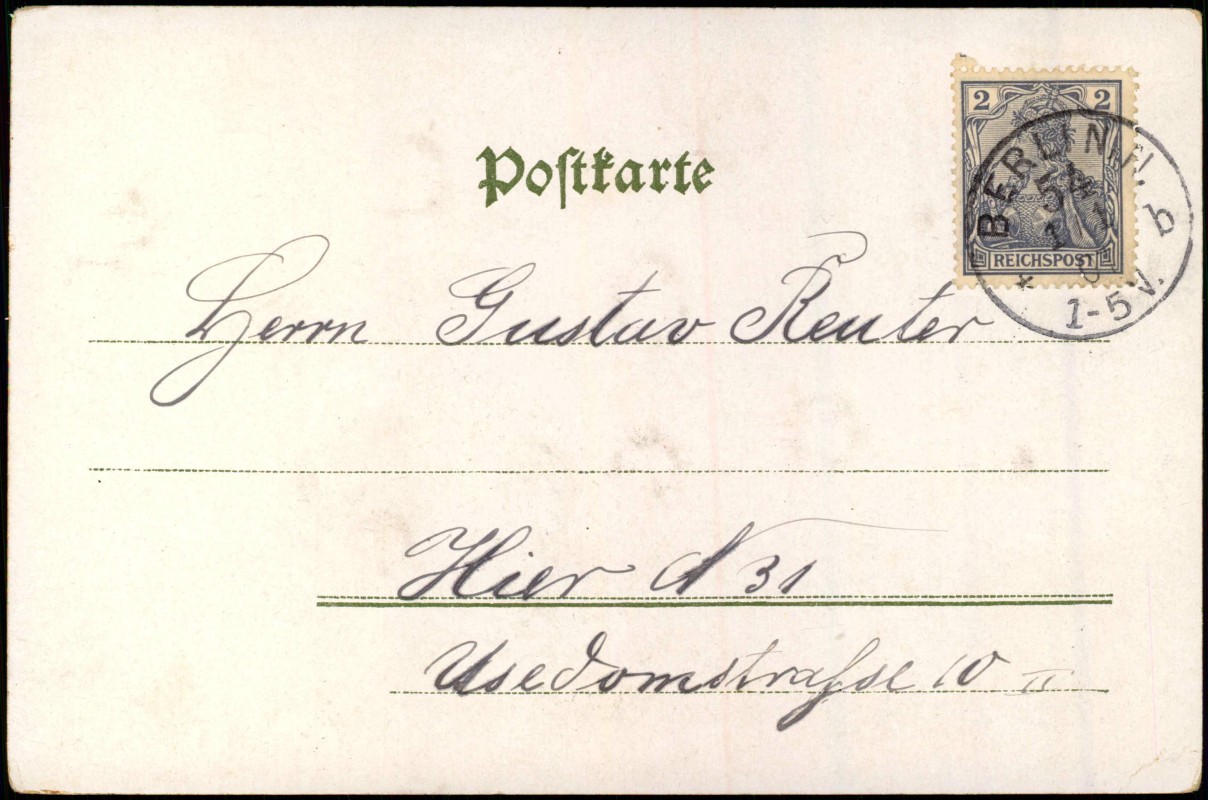 Postkarte
2 2
REICHSPOST
BERLIN, N.
54
1 1 b
1-5 V.
Herrn Gustav Reuter
Hier N 31
Usedomstrasse 10 II